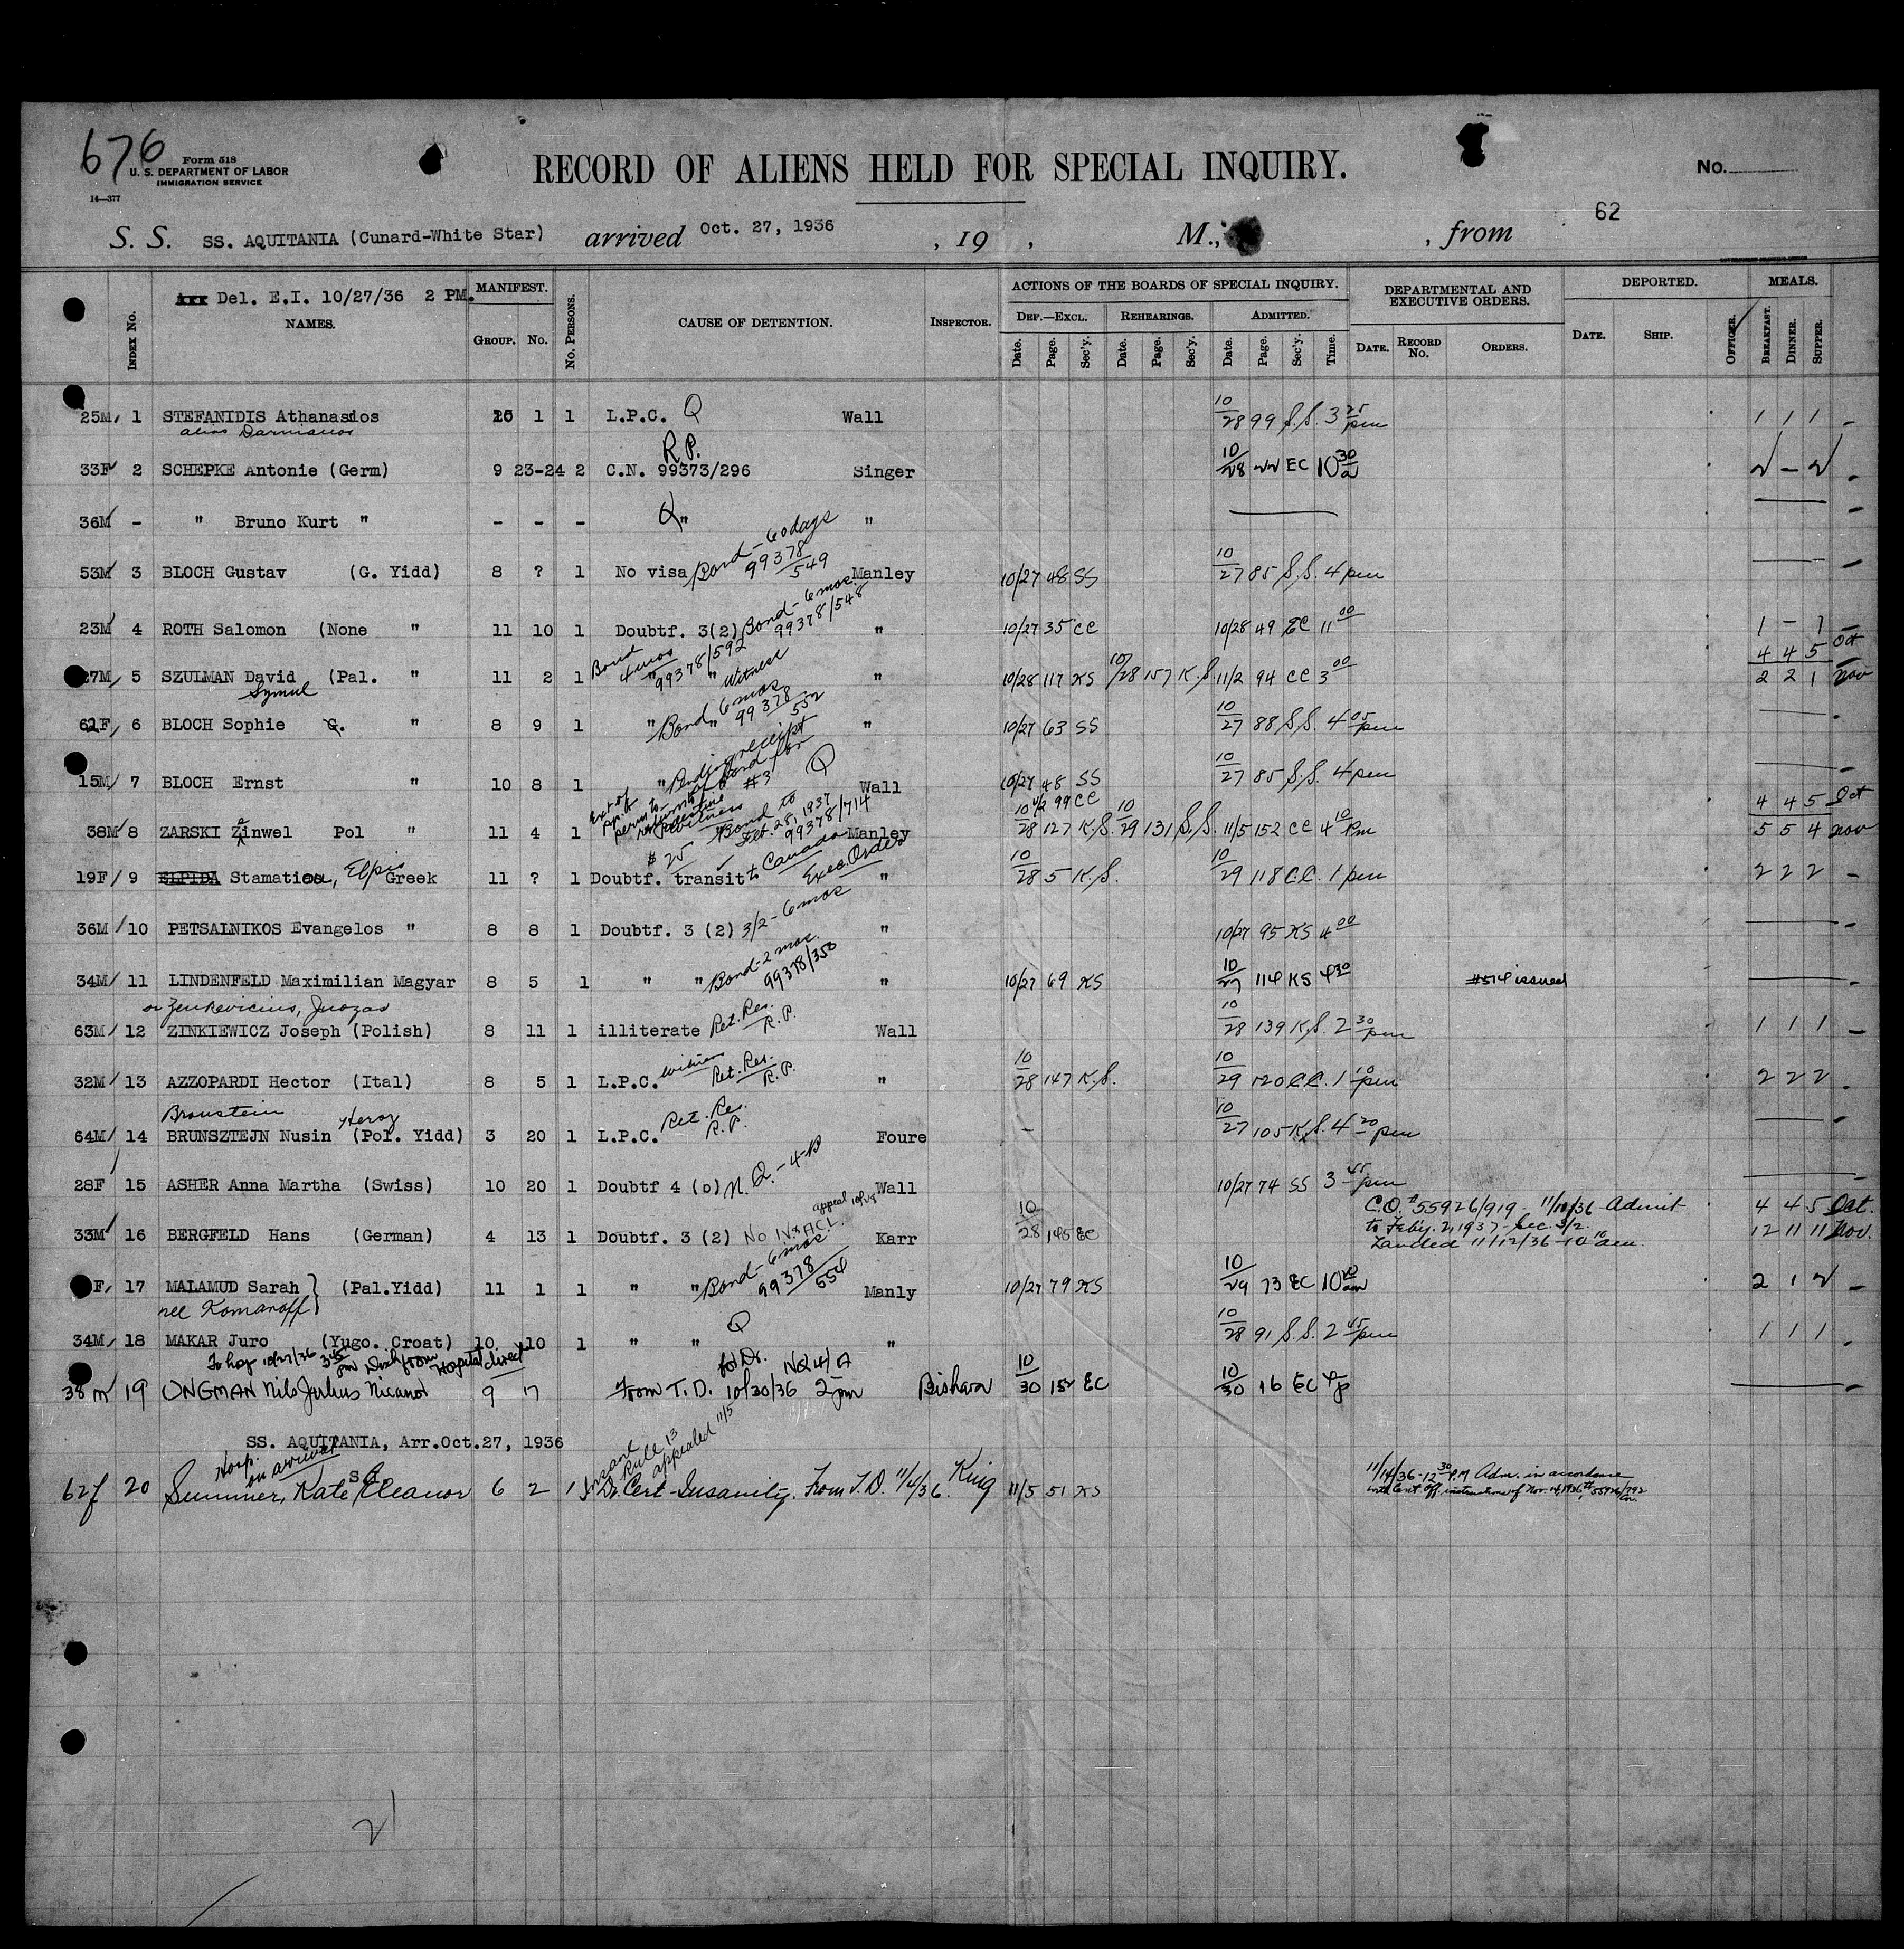 676
Form 518
U. S. DEPARTMENT OF LABOR
IMMIGRATION SERVICE
14—377
RECORD OF ALIENS HELD FOR SPECIAL INQUIRY.
No.
62
S. S. SS. AQUITANIA (Cunard-White Star) arrived Oct. 27, 1936 , 19 , M., , from
Del. E.I. 10/27/36 2 PM.
INDEX No. NAMES. MANIFEST. GROUP. No. No. PERSONS. CAUSE OF DETENTION. INSPECTOR.
ACTIONS OF THE BOARDS OF SPECIAL INQUIRY.
DEF.—EXCL. Date. Page. Sec'y. REHEARINGS. Date. Page. Sec'y. ADMITTED. Date. Page. Sec'y. Time.
DEPARTMENTAL AND EXECUTIVE ORDERS. DATE. RECORD No. ORDERS.
DEPORTED. DATE. SHIP. OFFICER.
MEALS. BREAKFAST. DINNER. SUPPER.
25M 1 STEFANIDIS Athanasios 10 1 1 L.P.C. Q Wall 10/28 99 S.S. 3 25 pm 1 1 1 –
alias Darmianos
R.P.
33F 2 SCHEPKE Antonie (Germ) 9 23-24 2 C.N. 99373/296 Singer 10/28 22 EC 10 30 a 2 – 2 –
36M - " Bruno Kurt " - - - Q " " –
53M 3 BLOCH Gustav (G. Yidd) 8 ? 1 No visa Bond-60 days 99378/549 Manley 10/27 48 SS 10/27 85 S.S. 4 pm –
23M 4 ROTH Salomon (None " 11 10 1 Doubtf. 3(2) Bond-6 mos. 99378/548 " 10/27 35 CC 10/28 49 EC 11 00 1 – 1 –
4 4 5 Oct
27M 5 SZULMAN David (Pal. " 11 2 1 Bond 4 mos 99378/592 " " Witness " 10/28 117 KS 10/28 157 K.S. 11/2 94 CC 3 00 2 2 1 Nov
Szmul
61F 6 BLOCH Sophie G. " 8 9 1 " " Bond 6 mos 99378/552 " 10/27 63 SS 10/27 88 S.S. 4 05 pm –
15M 7 BLOCH Ernst " 10 8 1 " Pending receipt of Bond for #3 Q Wall 10/27 48 SS 10/27 85 S.S. 4 pm –
11/2 99 CC 4 4 5 Oct
38M 8 ZARSKI Zinwel Pol " 11 4 1 Witness Bond to Feb. 28, 1937 99378/714 Manley 10/28 127 K.S. 10/29 131 S.S. 11/5 152 CC 4 10 Pm 5 5 4 Nov
19F 9 ELPIDA Stamatiou, Elpis Greek 11 ? 1 Doubtf. transit $25 to Canada Exec. Order " 10/28 5 K.S. 10/29 118 C.C. 1 pm 2 2 2 –
36M 10 PETSALNIKOS Evangelos " 8 8 1 Doubtf. 3 (2) 3/2-6 mos " 10/27 95 KS 4 00 –
34M 11 LINDENFELD Maximilian Magyar 8 5 1 " " Bond-2 mos. 99378/350 " 10/27 69 KS 10/27 114 KS 4 30 #514 issued –
or Zenkevicius, Juozas
63M 12 ZINKIEWICZ Joseph (Polish) 8 11 1 illiterate Ret. Res. R.P. Wall 10/28 139 K.S. 2 30 pm 1 1 1 –
32M 13 AZZOPARDI Hector (Ital) 8 5 1 L.P.C. witness Ret. Res. R.P. " 10/28 147 K.S. 10/29 120 C.C. 1 10 pm 2 2 2 –
Broustein Hersz
64M 14 BRUNSZTEJN Nusin (Pol. Yidd) 3 20 1 L.P.C. Ret. Res. R.P. Foure – 10/27 105 K.S. 4 20 pm –
28F 15 ASHER Anna Martha (Swiss) 10 20 1 Doubtf 4 (b) N.Q.-4-B Wall 10/27 74 SS 3 45 pm –
33M 16 BERGFELD Hans (German) 4 13 1 Doubtf. 3 (2) Karr 10/28 145 EC C.O. # 55926/919 - 11/12/36 Admit to Feby. 2, 1937 - Sec. 3/2. Landed 11/12/36 - 10 10 am. 4 4 5 Oct. 12 11 11 Nov.
F 17 MALAMUD Sarah (Pal.Yidd) 11 1 1 " " Bond-6 mos. 99378/554 Manly 10/27 79 KS 10/29 73 EC 10 10 am 2 1 2 –
nee Komanoff
34M 18 MAKAR Juro (Yugo. Croat) 10 10 1 " " Q " 10/28 91 S.S. 2 45 pm 1 1 1
To hosp 10/27/36 3 45 pm Disch from Hospital direct
38m 19 UNGMAN Nils Julius Nicanor 9 17 From T.D. 10/30/36 2 pm Bishara 10/30 152 EC 10/30 16 EC 4 p –
SS. AQUITANIA, Arr.Oct.27, 1936
Hosp. on arrival
62f 20 Summer, Kate Eleanor 6 2 1 Dr. Cert-Insanity. From T.D. 11/4/36. King 11/5 51 KS
Rule 13 appealed 11/5
11/14/36-12 30 P.M Adm. in accordance
with Cent. Off. instructions of Nov. 14, 1936 55926/792
21